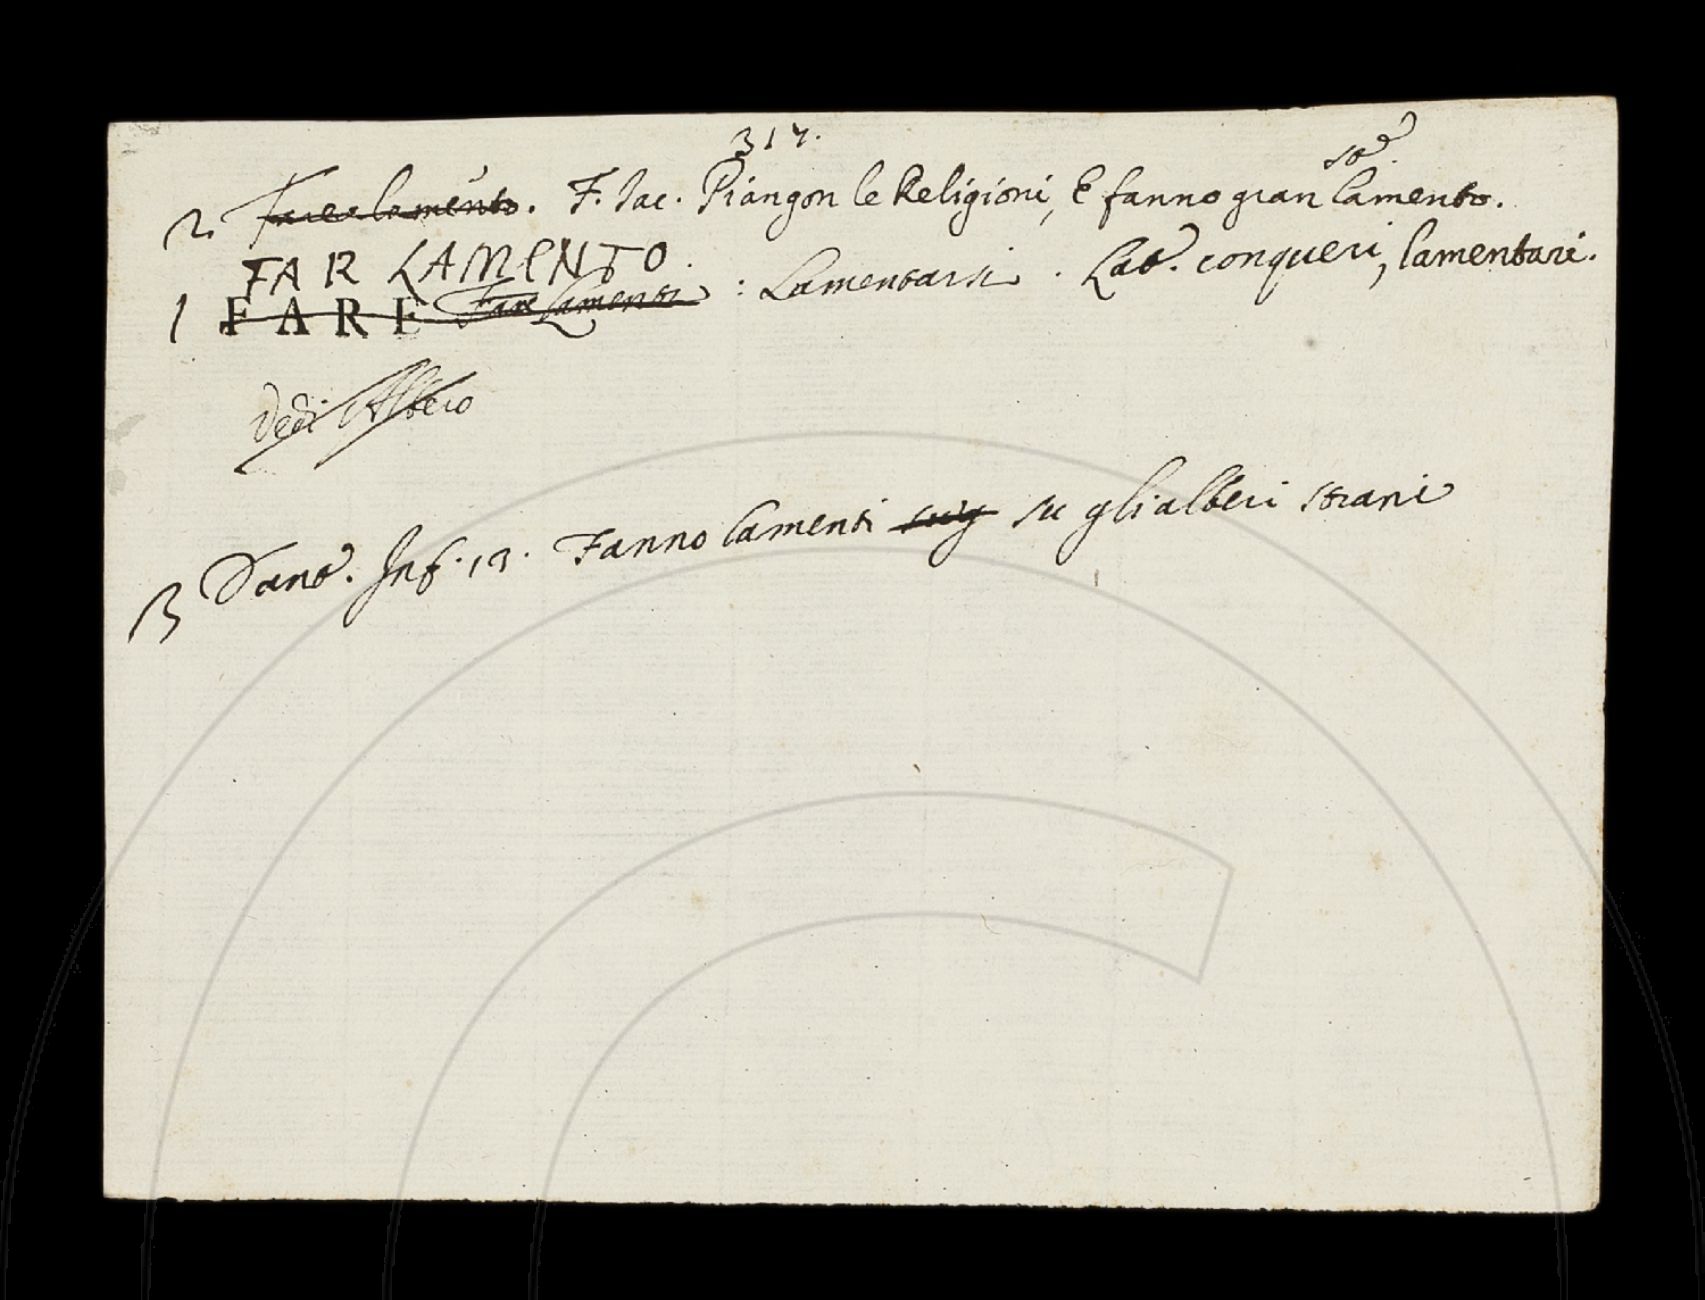 317.
to.
2. Fare lamento. F. Iac. Piangon le Religioni, E fanno gran lamento.
FAR LAMENTO.
1 FARE Fare Lamenti : Lamentarsi . Lat. conqueri, lamentari.
Vedi Albero
3 Dant. Inf. 13. Fanno lamenti sug su gli alberi strani